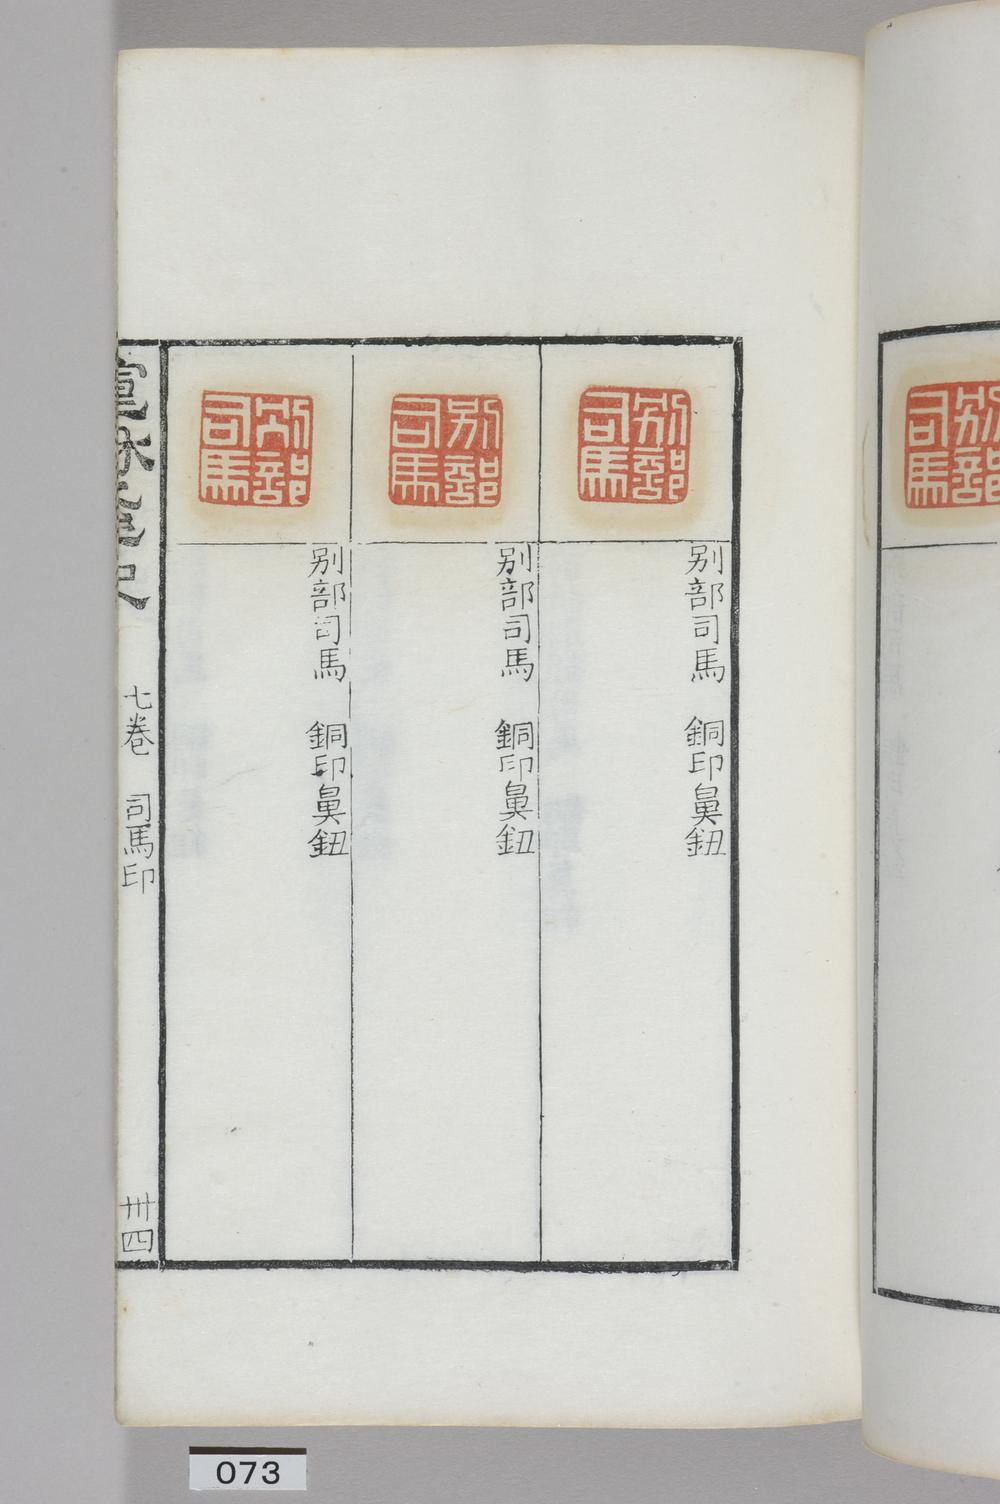 別部司馬
别部司馬 銅印鼻鈕
別部司馬
别部司馬 銅印鼻鈕
別部司馬
别部司馬 銅印鼻鈕
七卷 司馬印
卅四
別部司馬
073